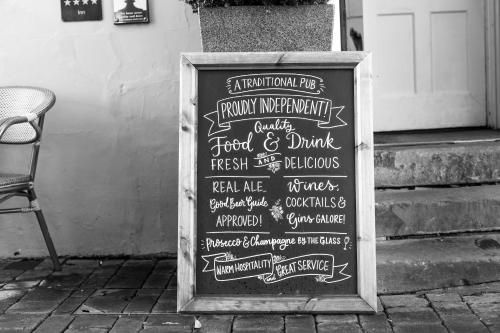 ★★★★
Inn
A TRADITIONAL PUB
PROUDLY INDEPENDENT!
Quality
Food & Drink
FRESH AND DELICIOUS
REAL ALE,
Good Beer Guide
APPROVED!
Wines,
COCKTAILS &
Gins GALORE!
Prosecco & Champagne BY THE GLASS
WARM HOSPITALITY
GREAT SERVICE